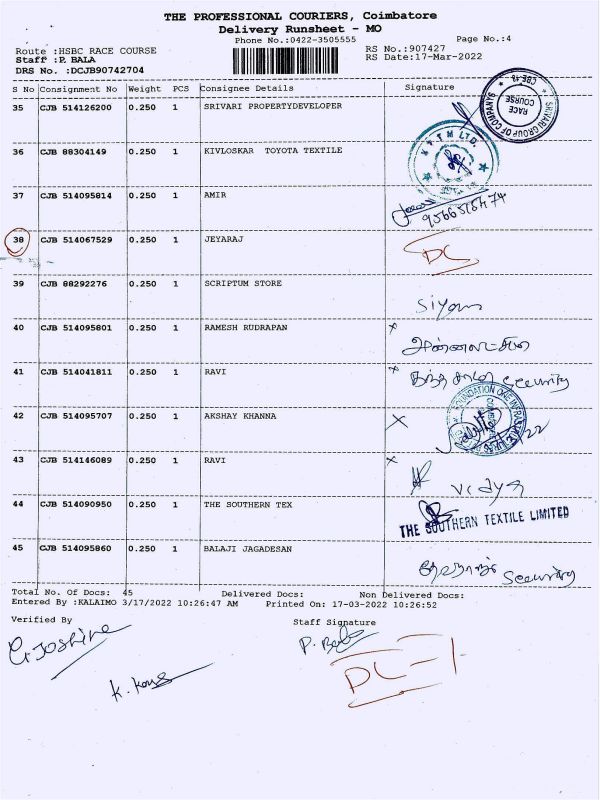 THE PROFESSIONAL COURIERS, Coimbatore
Delivery Runsheet - MO
Phone No.:0422-3505555 Page No.:4
Route :HSBC RACE COURSE RS No.:907427
Staff :P. BALA RS Date:17-Mar-2022
DRS No. :DCJB90742704
S No Consignment No Weight PCS Consignee Details Signature
35 CJB 514126200 0.250 1 SRIVARI PROPERTYDEVELOPER
SRIVARI GROUP OF COMPANYS RACE COURSE CBE-18
36 CJB 88304149 0.250 1 KIVLOSKAR TOYOTA TEXTILE
K T T M LTD.
37 CJB 514095814 0.250 1 AMIR
38 CJB 514067529 0.250 1 JEYARAJ
DC
39 CJB 88292276 0.250 1 SCRIPTUM STORE
40 CJB 514095801 0.250 1 RAMESH RUDRAPAN
41 CJB 514041811 0.250 1 RAVI
Security
42 CJB 514095707 0.250 1 AKSHAY KHANNA
43 CJB 514146089 0.250 1 RAVI
Vidya
44 CJB 514090950 0.250 1 THE SOUTHERN TEX
THE SOUTHERN TEXTILE LIMITED
45 CJB 514095860 0.250 1 BALAJI JAGADESAN
Security
Total No. Of Docs: 45 Delivered Docs: Non Delivered Docs:
Entered By :KALAIMO 3/17/2022 10:26:47 AM Printed On: 17-03-2022 10:26:52
Verified By Staff Signature
G. Joshine P. Bala
DC - 1